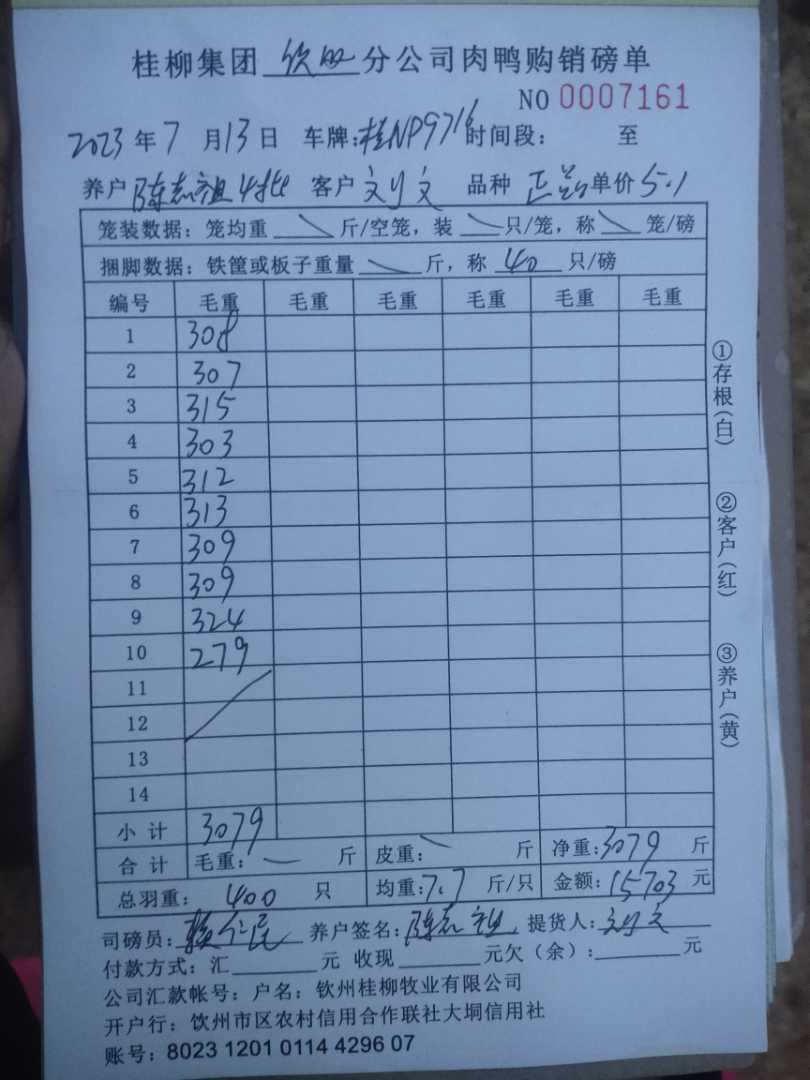 桂柳集团 钦州 分公司肉鸭购销磅单
NO 0007161
2023 年 7 月 13 日 车牌:桂NP9716 时间段: 至
养户 陈志祖4批 客户 刘文 品种 正常 单价 5.1
笼装数据: 笼均重 斤/空笼, 装 只/笼, 称 笼/磅
捆脚数据: 铁筐或板子重量 斤, 称 40 只/磅
编号 毛重 毛重 毛重 毛重 毛重 毛重
1 308
2 307
3 315
4 303
5 312
6 313
7 309
8 309
9 324
10 279
11
12
13
14
小计 3079
合计 毛重: 斤 皮重: 斤 净重:3079 斤
总羽重: 400 只 均重:7.7 斤/只 金额:15703 元
司磅员: 养户签名:陈志祖 提货人:刘文
付款方式: 汇 元 收现 元欠(余): 元
公司汇款帐号: 户名: 钦州桂柳牧业有限公司
开户行: 饮州市区农村信用合作联社大垌信用社
账号: 8023 1201 0114 4296 07
①存根(白)
②客户(红)
③养户(黄)